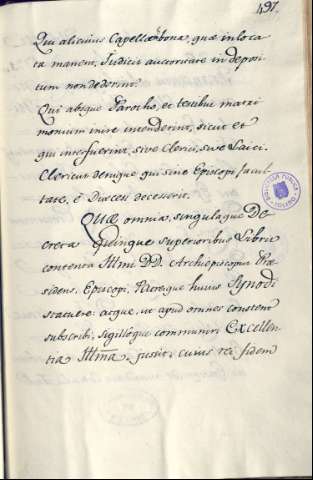 497.
Qui alicuius Capellæ bona, quæ in loca
ea manent, Judicis auctoritate in deposi
tum non dederint.
Qui absque Parocho, et testibus matri
monium inire intenderint, sicut et
qui interfuerint, sive Clerici, sive Laici.
Clericus denique qui sine Episcopi facul
tate, é Diœcesi decesserit.
Quæ omnia, singulaque De
creta Quinque superioribus Libris
contenta Illmi DD. Archiepiscopus Præ
sidens, Episcopi, Patresque huius Synodi
statuere: atque, ut apud omnes constent
subscribi, sigilloque communiri Excellen
tia Illma. jussit, cuius rei fidem
BIBLIOTECA PUBLICA
TOLEDO